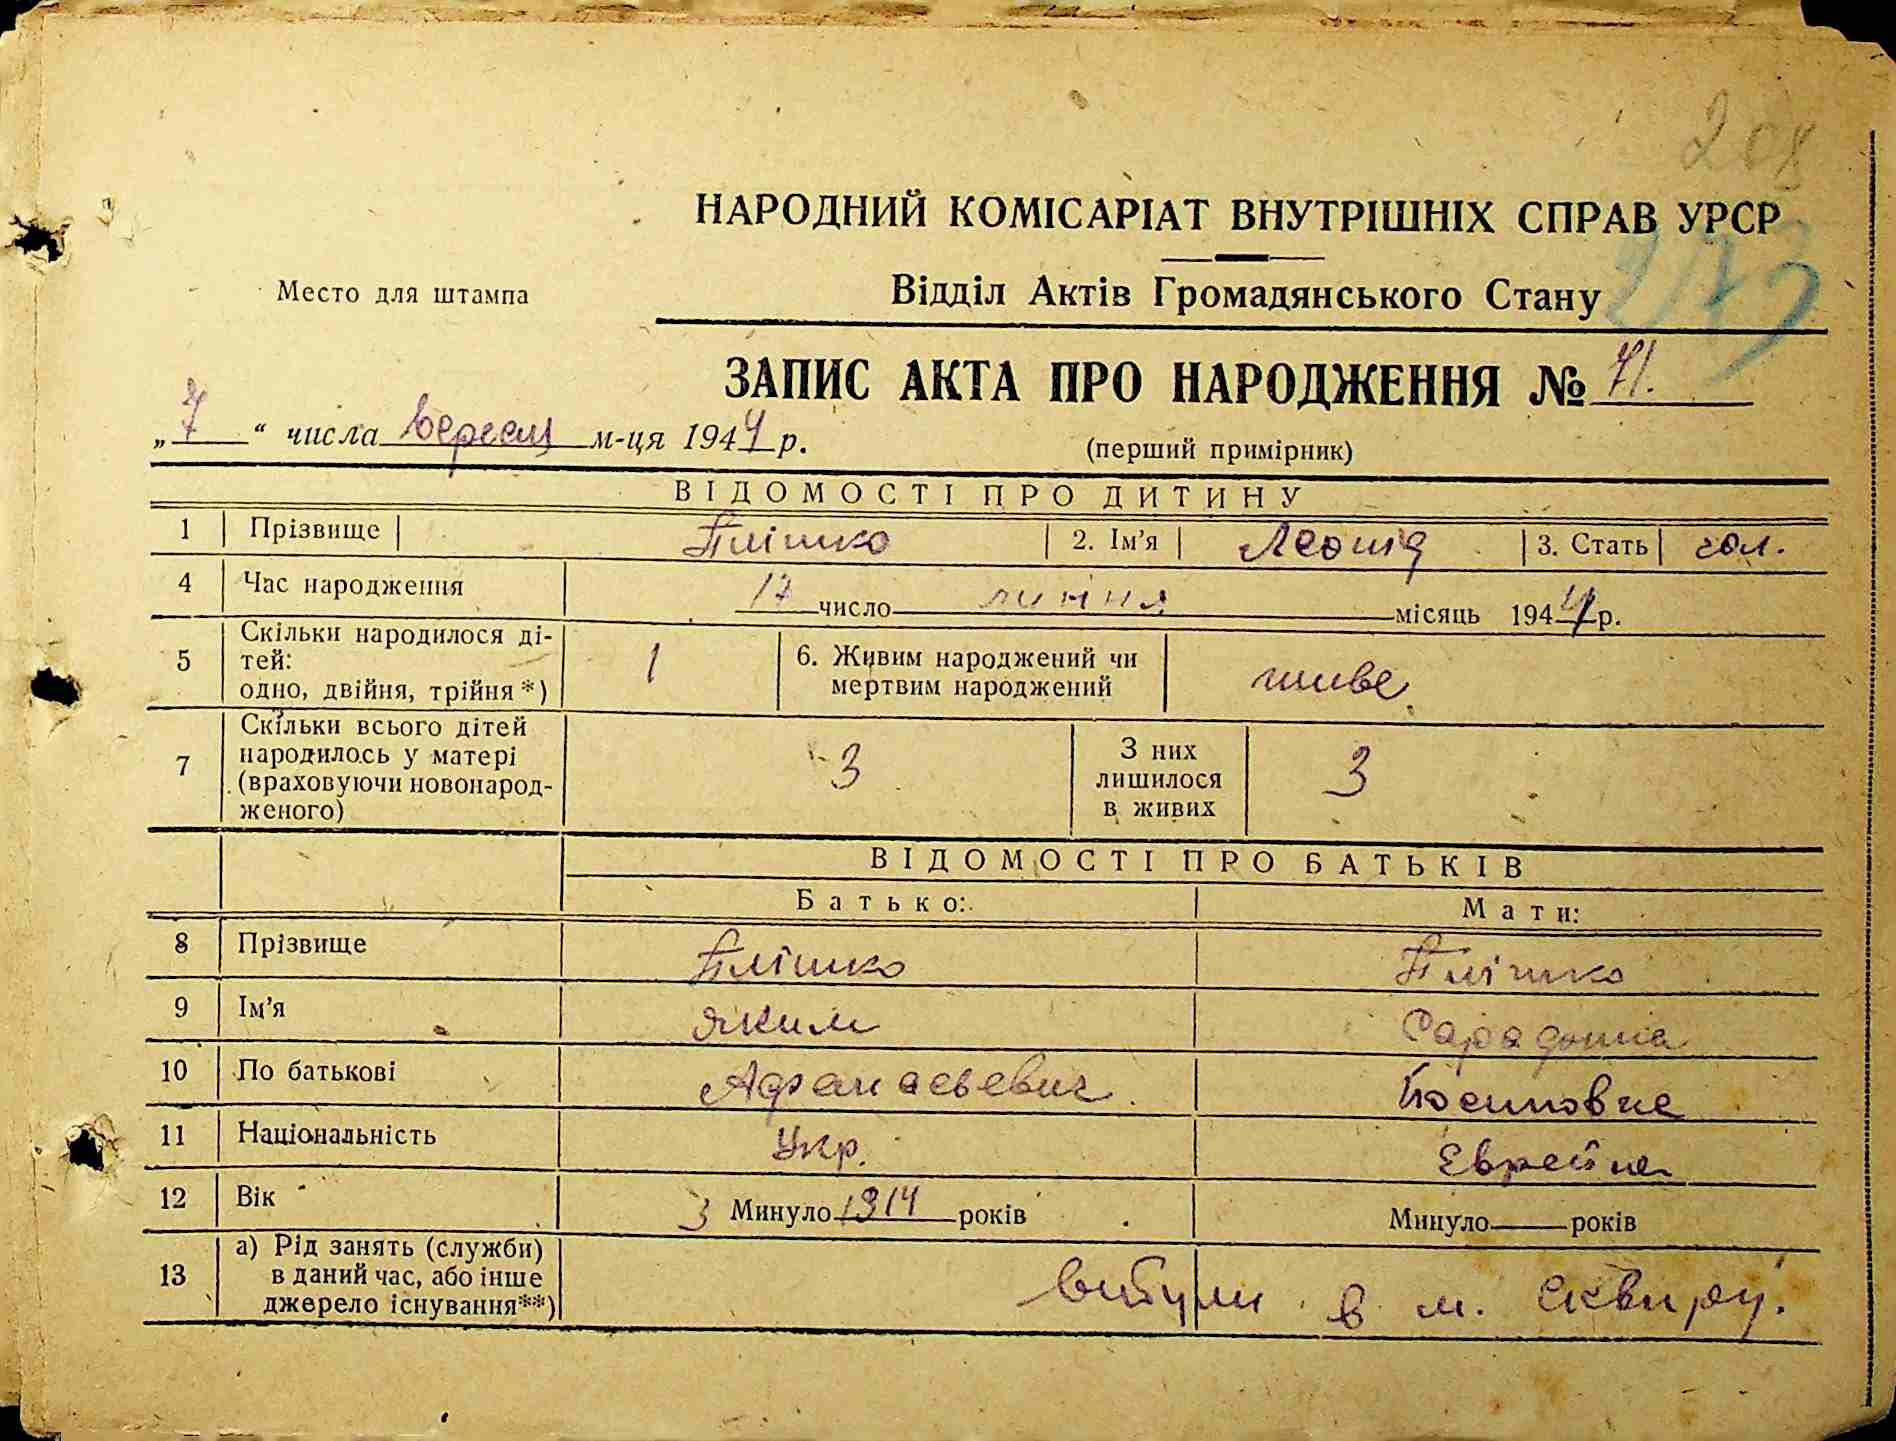 208
НАРОДНИЙ КОМІСАРІАТ ВНУТРІШНІХ СПРАВ УРСР
Место для штампа
Відділ Актів Громадянського Стану
ЗАПИС АКТА ПРО НАРОДЖЕННЯ № 71.
„ 7 “ числа вересня м-ця 1944 р.
(перший примірник)
ВІДОМОСТІ ПРО ДИТИНУ
1 Прізвище Плішко 2. Ім'я Леонід 3. Стать чол.
4 Час народження 17 число липня місяць 1944 р.
5 Скільки народилося ді-
тей:
одно, двійня, трійня *) 1 6. Живим народжений чи
мертвим народжений живе
7 Скільки всього дітей
народилось у матері
(враховуючи новонарод-
женого) 3 З них
лишилося
в живих 3
ВІДОМОСТІ ПРО БАТЬКІВ
Батько: Мати:
8 Прізвище Плішко Плішко
9 Ім'я Яким
10 По батькові Афанасьевич Йосиповна
11 Національність Укр. Еврейка
12 Вік З Минуло 1914 років Минуло років
13 а) Рід занять (служби)
в даний час, або інше
джерело існування**) вибули в м. Сквиру.